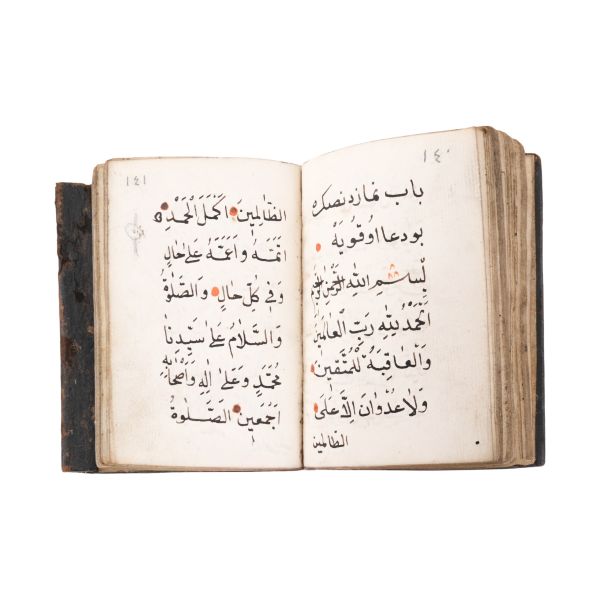 ١٤٠
باب نمازدنصكره
بودعا اوقويه
بِسْمِ اللهِ الرَّحْمٰنِ الرَّحِيمِ
اَلْحَمْدُ لِلّٰهِ رَبِّ الْعَالَمِينَ
وَالْعَاقِبَةُ لِلْمُتَّقِينَ
وَلَاعُدْوَانَ اِلَّا عَلَى
الظالمين
١٤١
الظَّالِمِينَ اَكْمَلَ الْحَمْدِ
اَتَمَّهُ وَاَعَمَّهُ عَلٰى حَالٍ
وَفِي كُلِّ حَالٍ وَالصَّلٰوةُ
وَالسَّلَامُ عَلٰى سَيِّدِنَا
مُحَمَّدٍ وَعَلٰى اٰلِهِ وَاَصْحَابِهِ
اَجْمَعِينَ اَلصَّلٰوةُ